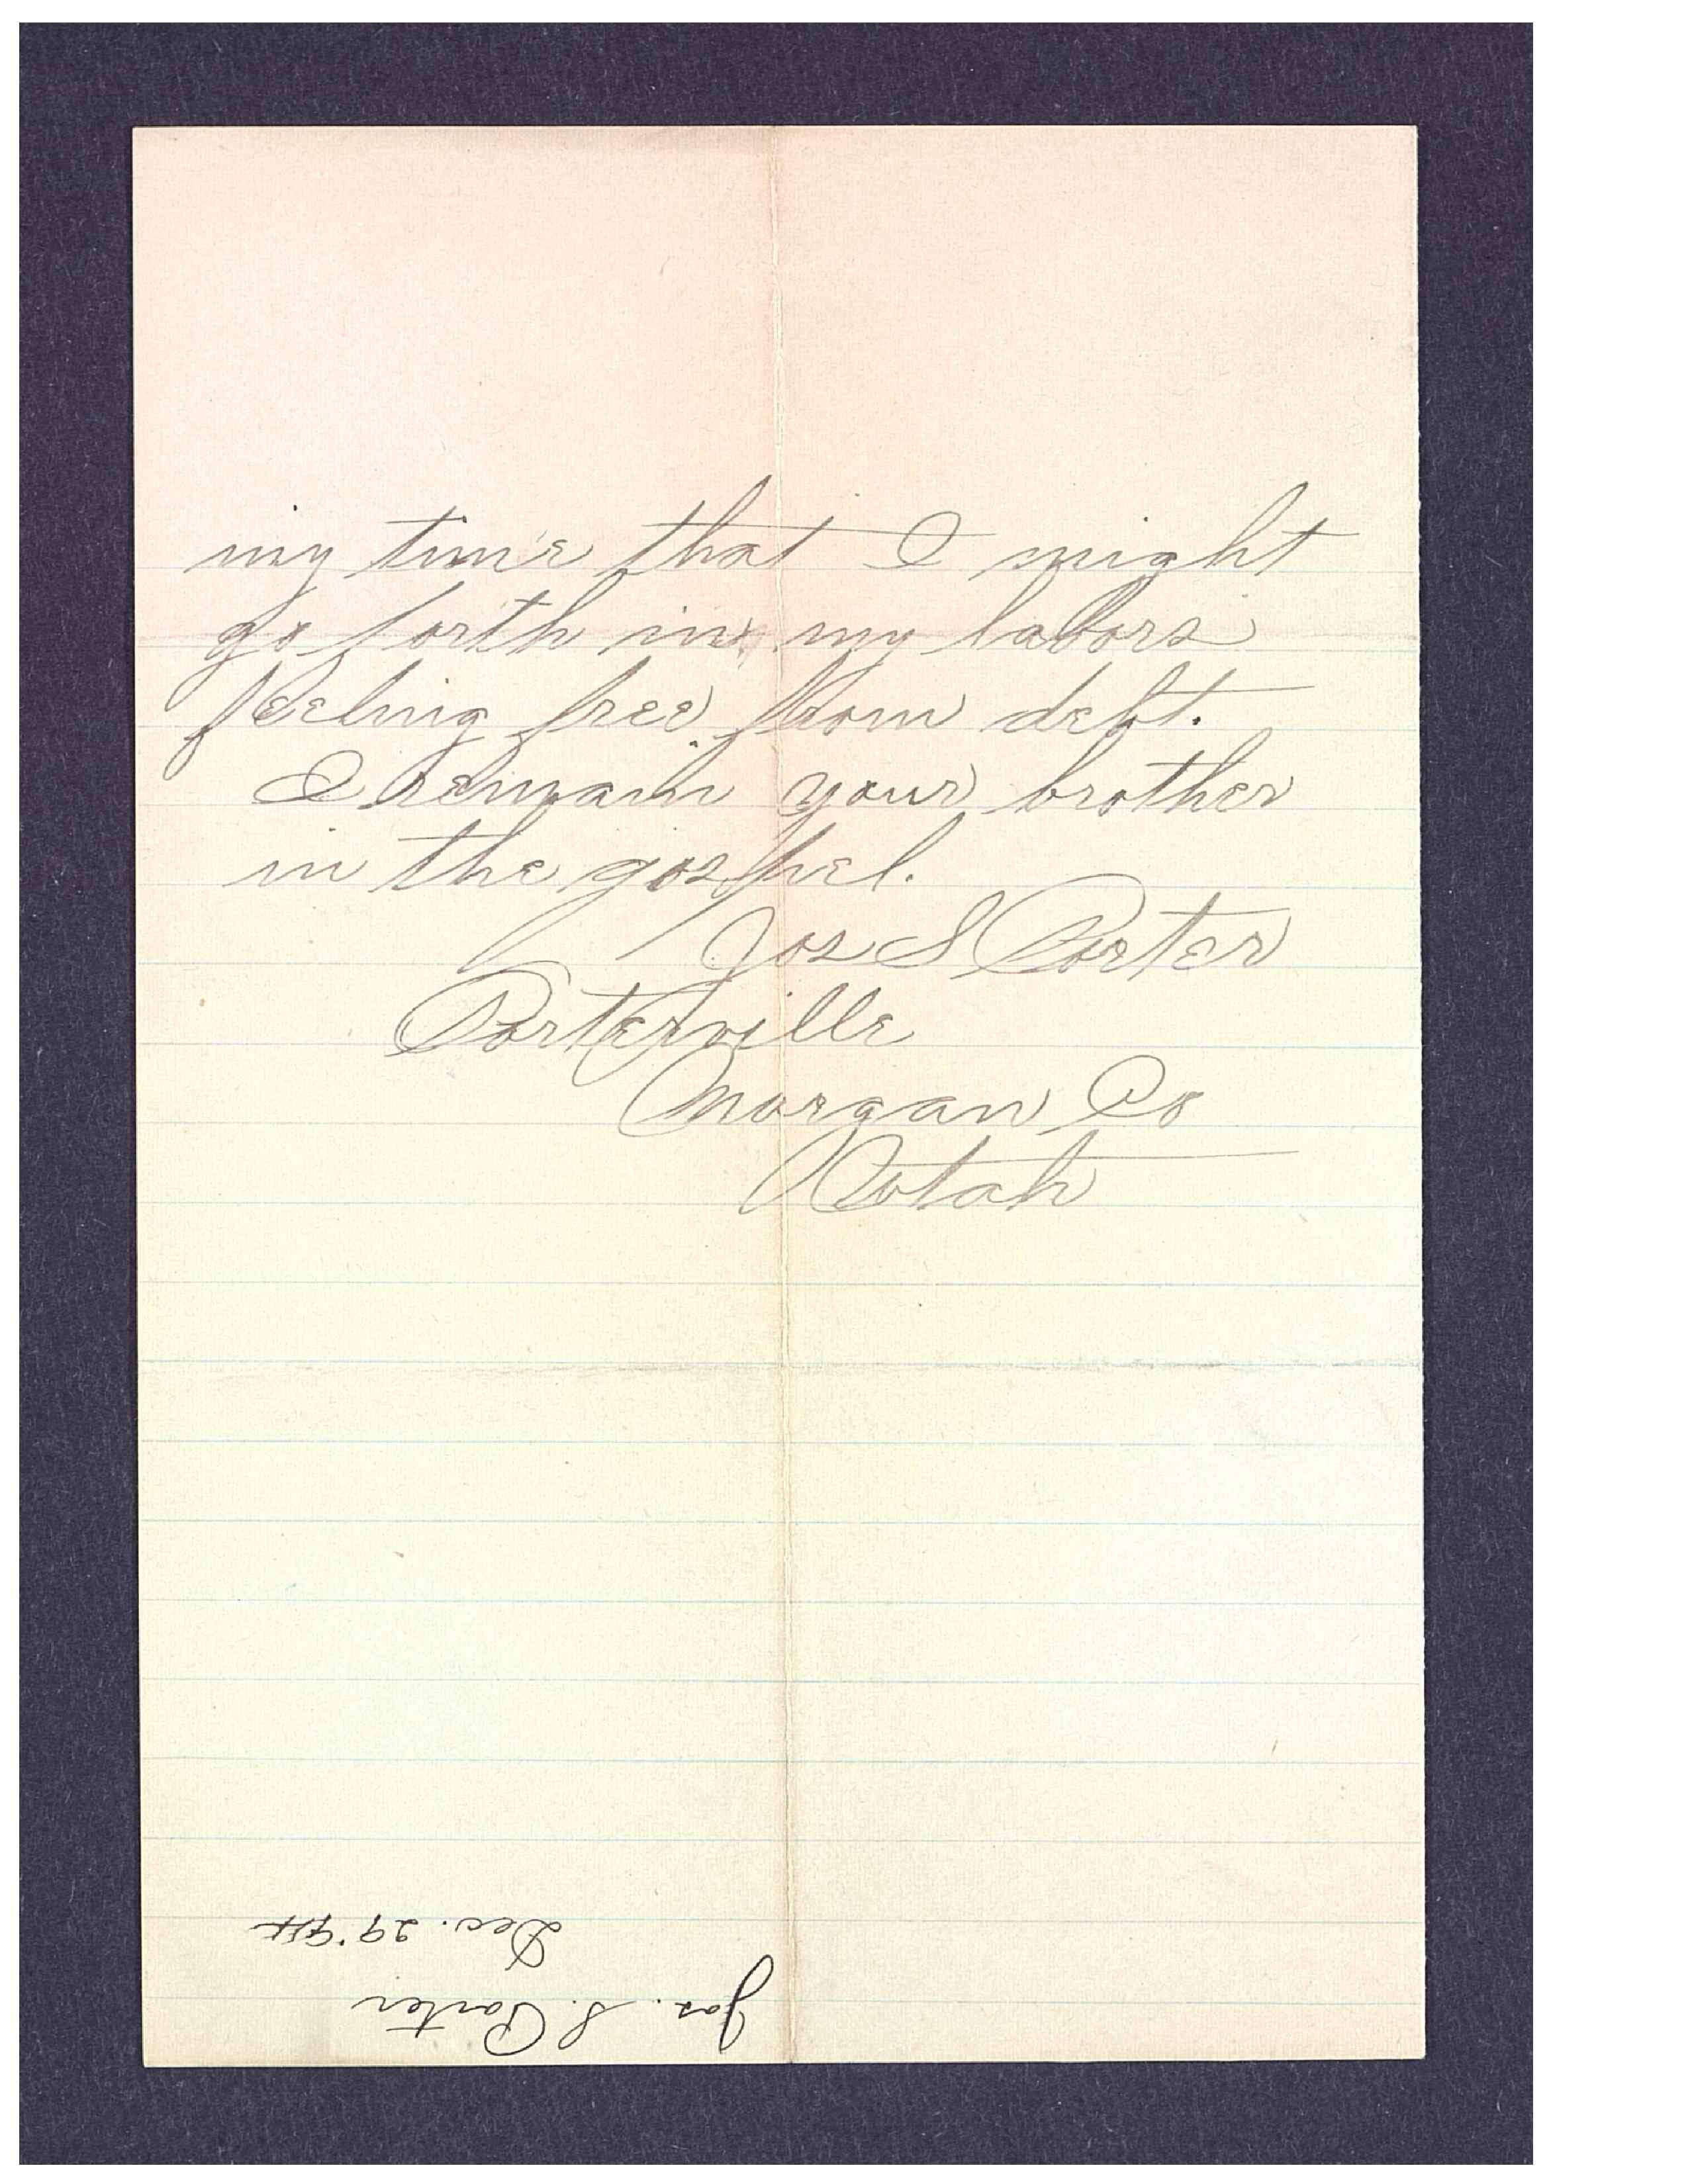 my time that I might
go forth in my labors
feeling free from debt.
I remain your brother
in the gospel.
Jos S Porter
Porterville
Morgan Co
Utah
Jos. S. Porter
Dec. 29 '94